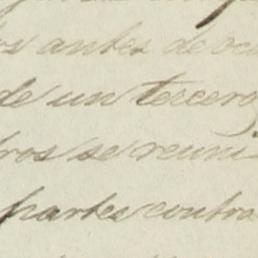 os antes de oc
de un tercero
ros se reuni
partes contra